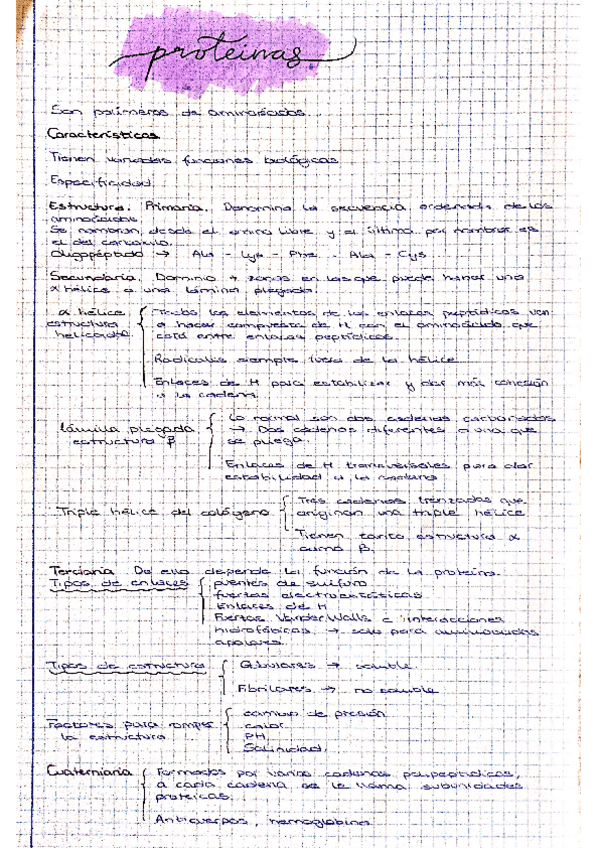 proteínas
Son polímeros de aminoácidos.
Características
Tienen variadas funciones biológicas
Especificidad.
Estructura. Primaria. Denomina la secuencia ordenada de los
aminoácidos
Se nombran desde el amino libre y el último por nombrar es
el del carboxilo.
Oligopéptido → Ala - Lys - Phe - Ala - Cys
Secundaria. Dominio → zonas en las que puede haber una
α hélice o una lámina plegada.
α hélice
estructura
helicoidal
Todos los elementos de los enlaces peptídicos van
a hacer de H con el aminoácido que
está entre enlaces peptídicos.
Radicales siempre fuera de la hélice
Enlaces de H para estabilizar y dar más cohesión
a la cadena.
lámina plegada
estructura β
Lo normal son dos cadenas carbonadas
→ Dos cadenas diferentes o una que
se pliega.
Enlaces de H transversales para dar
estabilidad a la cadena
Triple hélice del colágeno
Tres cadenas trenzadas que
originan una triple hélice
Tienen tanto estructura α
como β.
Terciaria De ello depende la función de la proteína.
Tipos de enlaces
puentes de sulfuro
fuerzas electroestáticas
Enlaces de H
Fuerzas VanderWalls e interacciones
hidrofóbicas → solo para aminoácidos
apolares
Tipos de estructura
Globulares → soluble
Fibrilares → no soluble
Factores para romper
la estructura
cambio de presión
calor
PH
Salinidad.
Cuaterniaria
Formados por varias cadenas polipeptídicas,
a cada cadena se le llama subunidades
proteicas.
Anticuerpos, hemoglobina